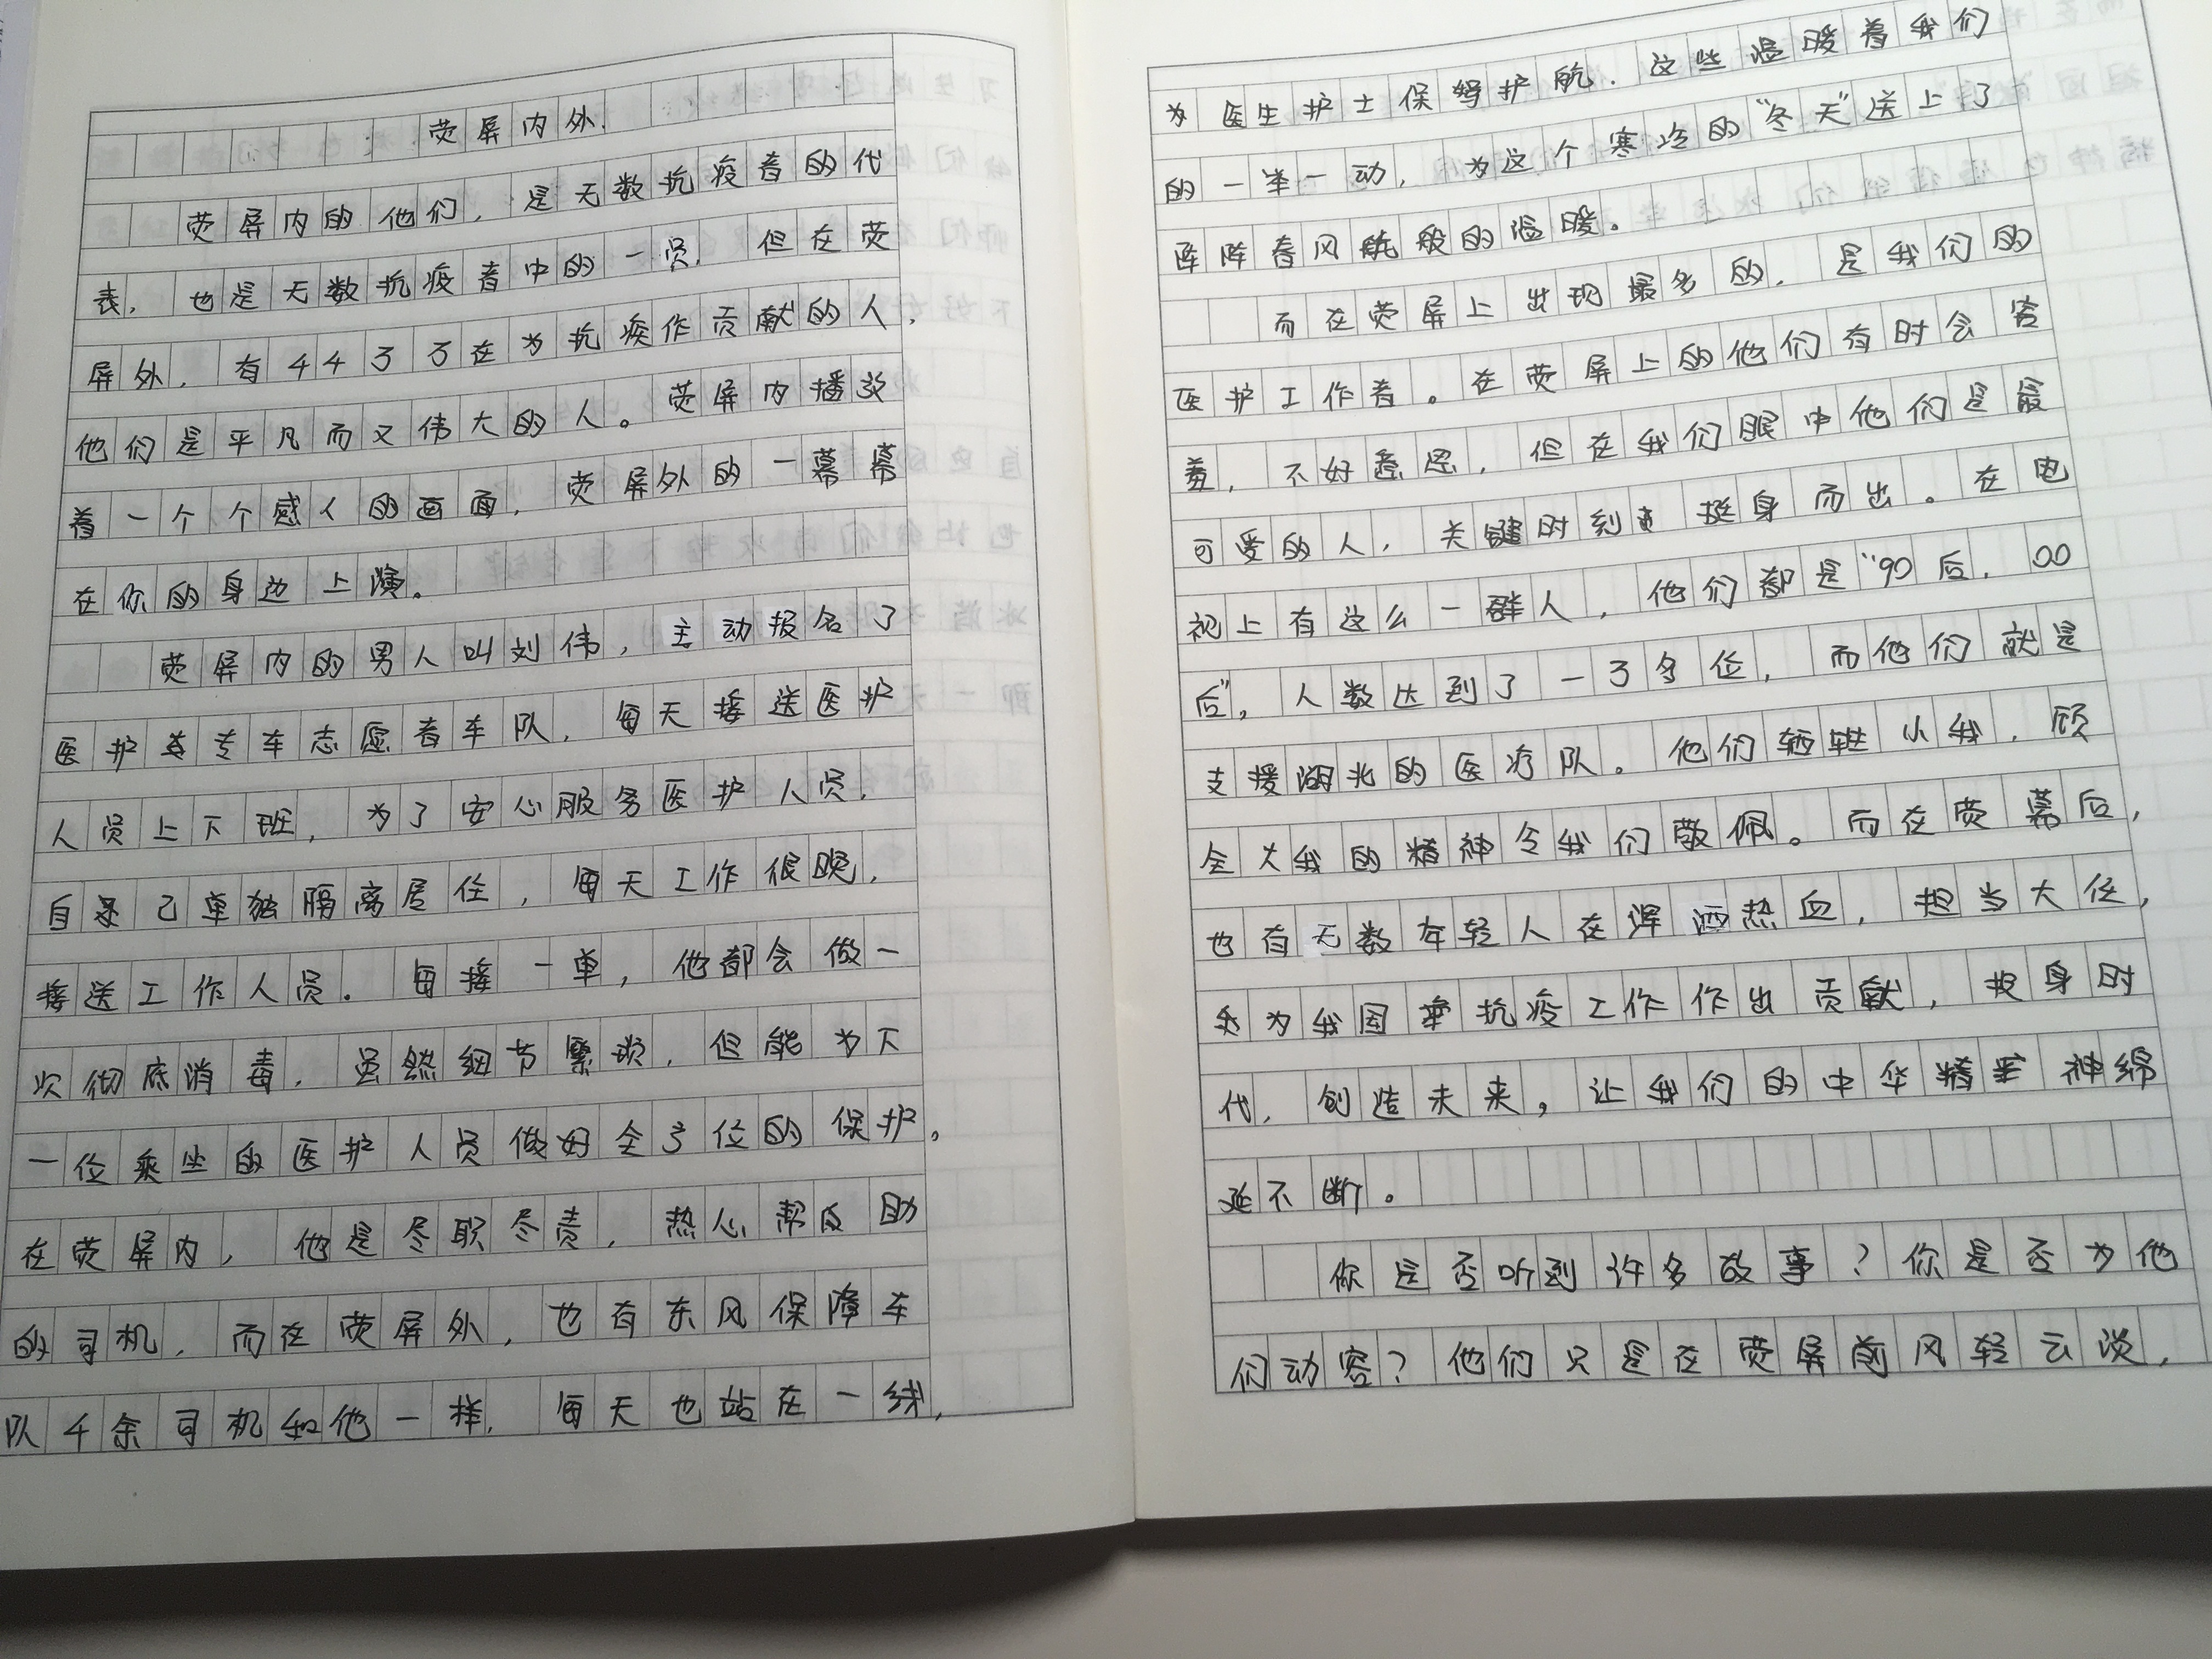 荧屏内外.
荧屏内的他们，是无数抗疫者的代
表，也是无数抗疫者中的一员，但在荧
屏外，有千千万万在为抗疫作贡献的人，
他们是平凡而又伟大的人。荧屏内播放
着一个个感人的画面，荧屏外的一幕幕
在你的身边上演。
荧屏内的男人叫刘伟，主动报名了
医护专车志愿者车队，每天接送医护
人员上下班，为了安心服务医护人员，
自己单独隔离居住，每天工作很晚，
接送工作人员。每接一单，他都会做一
次彻底消毒，虽然细节繁琐，但能为下
一位乘坐的医护人员做好全方位的保护。
在荧屏内，他是尽职尽责，热心帮助
的司机，而在荧屏外，也有东风保障车
队千余司机和他一样，每天也站在一线，
为医生护士保驾护航.这些温暖着我们
的一举一动，为这个寒冷的“冬天”送上了
阵阵春风般的温暖。
而在荧屏上出现最多的，是我们的
医护工作者。在荧屏上的他们有时会害
羞，不好意思，但在我们眼中他们是最
可爱的人，关键时刻挺身而出。在电
视上有这么一群人，他们都是“90后，00
后”，人数达到了一万多位，而他们就是
支援湖北的医疗队。他们牺牲小我，顾
全大我的精神令我们敬佩。而在荧幕后，
也有无数年轻人在挥洒热血，担当大任，
为我国抗疫工作作出贡献，投身时
代，创造未来，让我们的中华精神绵
延不断。
你是否听到许多故事？你是否为他
们动容？他们只是在荧屏前风轻云淡，